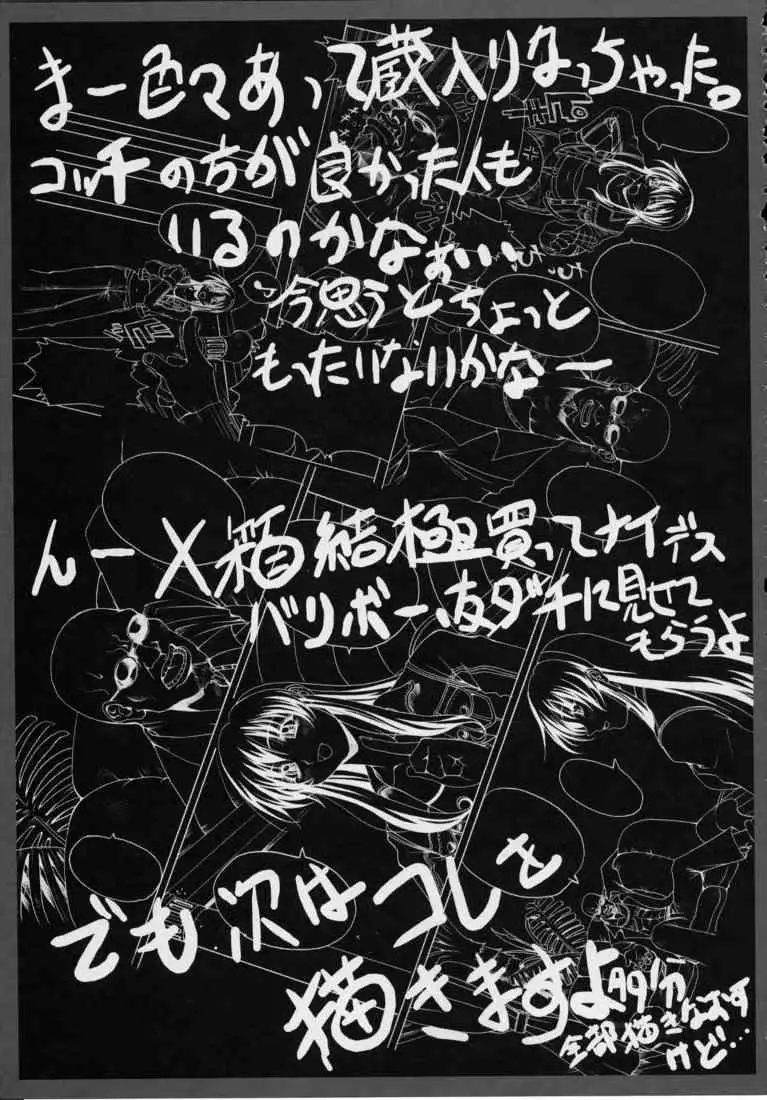 まー色々あって蔵入りなっちゃった。
コッチの方が良かった人も
いるのかなぁ…
今思うとちょっと
もったいないかなー
んーX箱結極買ってナイデス
バリボー、友ダチに見せて
もらうよ
でも次はコレを
描きますよ
全部描きなおす
けど…